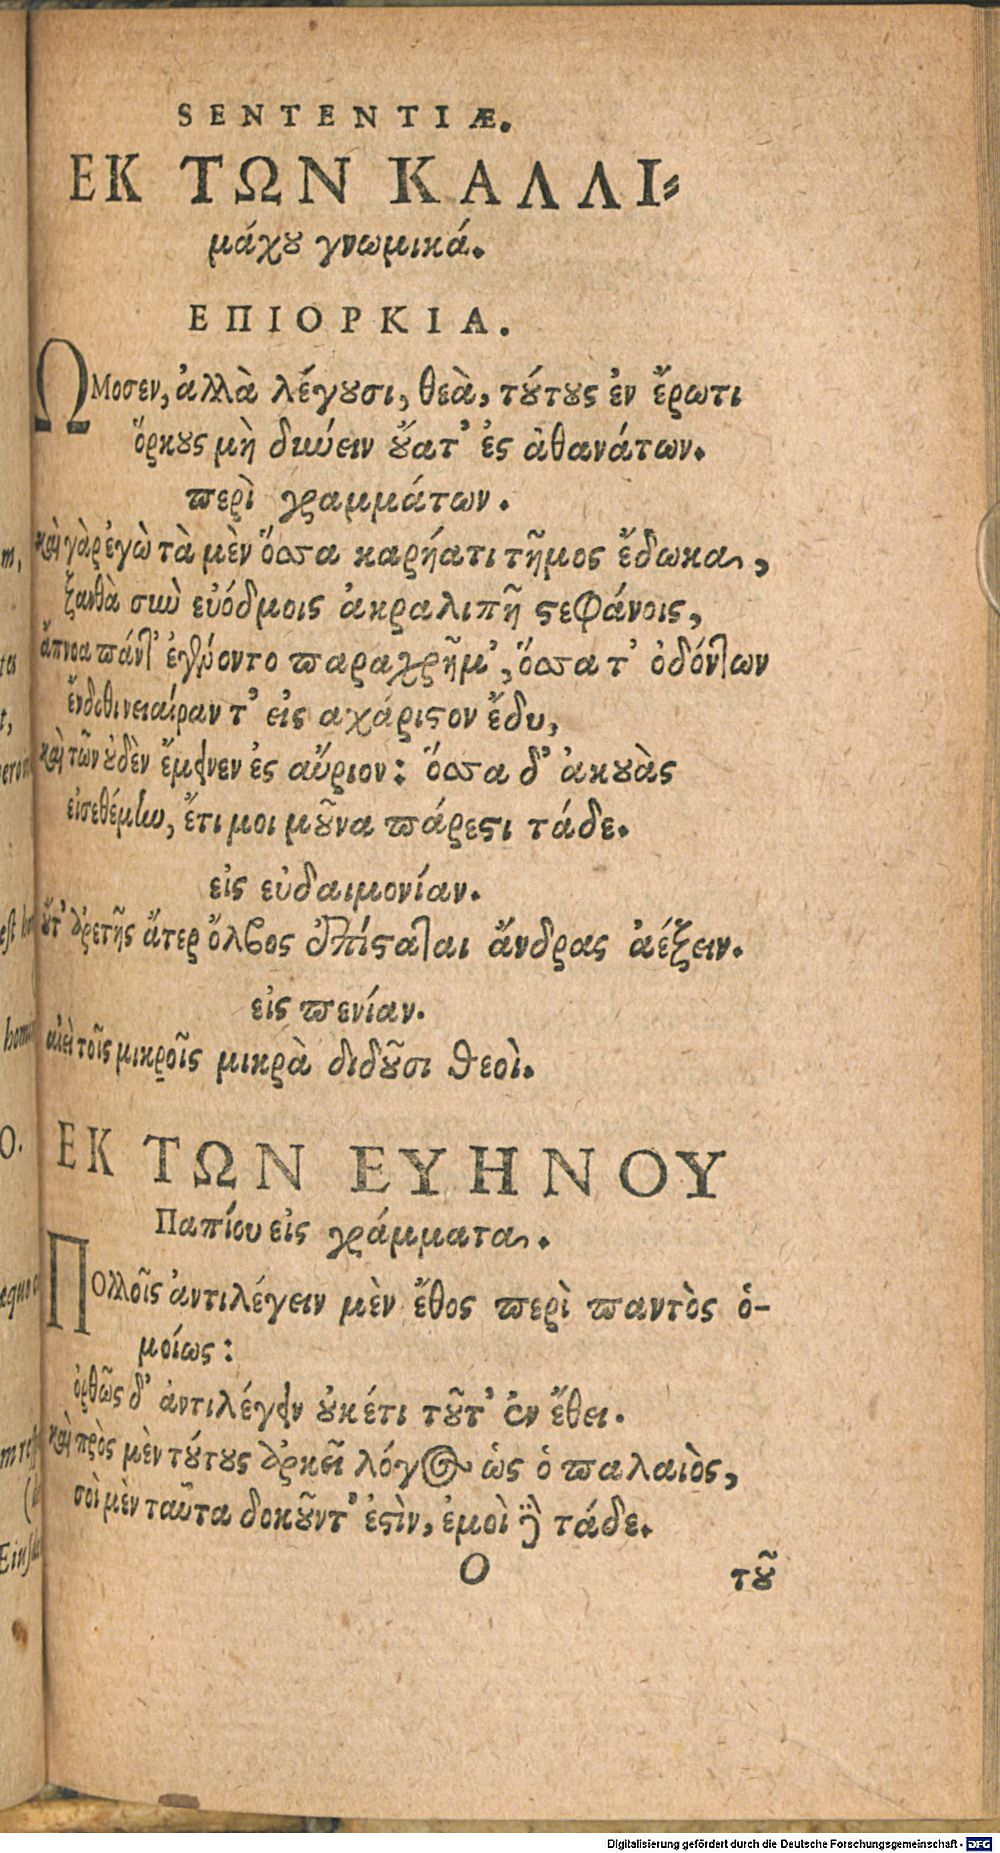 SENTENTIÆ.
ΕΚ ΤΩΝ ΚΑΛΛΙ-
μάχου γνωμικά.
ΕΠΙΟΡΚΙΑ.
ΩΜοσεν, ἀλλὰ λέγουσι, θεὰ, τούτους ἐν ἔρωτι
ὅρκους μὴ δύνειν οὔατ' ἐς ἀθανάτων.
περὶ γραμμάτων.
καὶ γὰρ ἐγὼ τὰ μὲν ὅσσα καρήατι τῆμος ἔδωκα,
ξανθὰ σὺν εὐόδμοις ἁκραλιπῆ στεφάνοις,
ἄπνοα πάντ' ἐγένοντο παραχρῆμ', ὅσσα τ' ὀδόντων
ἔνδοθι νειαίραν τ' εἰς ἀχάριστον ἔδυ,
καὶ τῶν οὐδὲν ἔμεινεν ἐς αὔριον: ὅσσα δ' ἀκουὰς
εἰσεθέμην, ἔτι μοι μοῦνα πάρεστι τάδε.
εἰς εὐδαιμονίαν.
οὔτ' ἀρετῆς ἄτερ ὄλβος ἐπίσταται ἄνδρας ἀέξειν.
εἰς πενίαν.
αἰεὶ τοῖς μικροῖς μικρὰ διδοῦσι θεοὶ.
ΕΚ ΤΩΝ ΕΥΗΝΟΥ
Παπίου εἰς γράμματα.
ΠΟλλοῖς ἀντιλέγειν μὲν ἔθος περὶ παντὸς ὁ-
μοίως:
ὀρθῶς δ' ἀντιλέγειν οὐκέτι τοῦτ' ἐν ἔθει.
καὶ πρὸς μὲν τούτους ἀρκεῖ λόγος ὡς ὁ παλαιὸς,
σοὶ μὲν ταῦτα δοκοῦντ' ἐστὶν, ἐμοὶ δὲ τάδε.
O
τοῦ
Digitalisierung gefördert durch die Deutsche Forschungsgemeinschaft - DFG